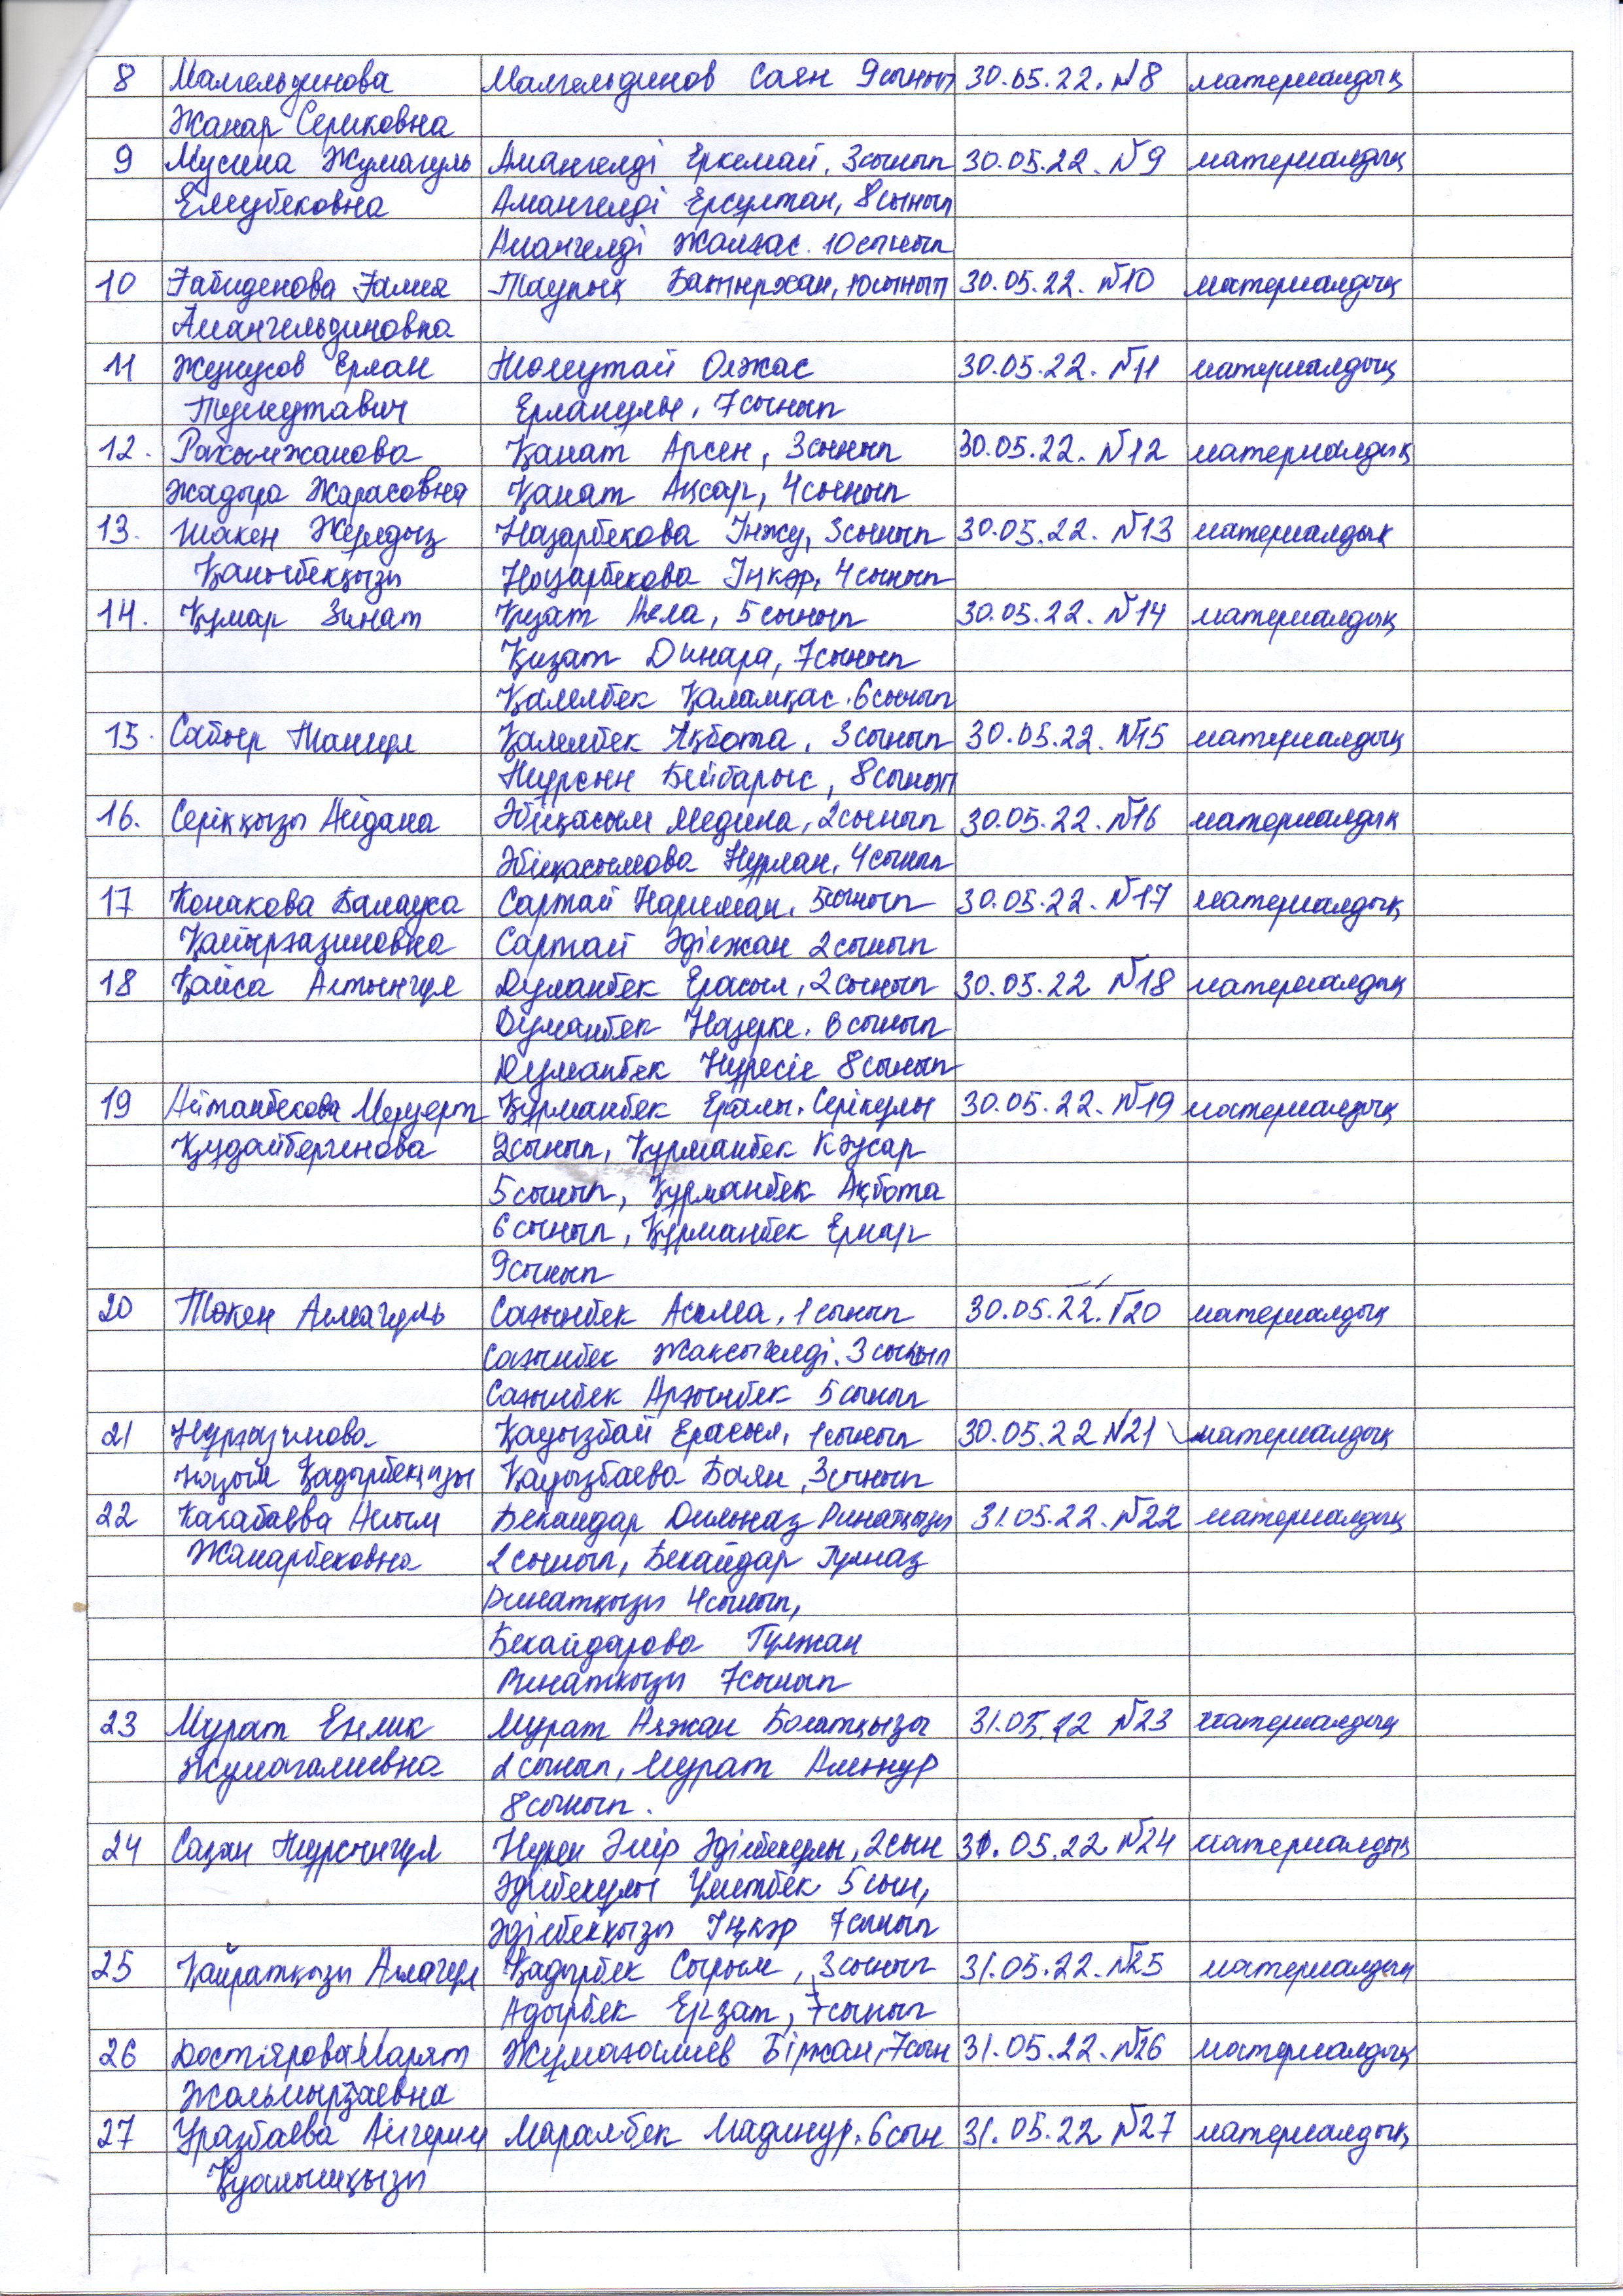 8 Малгельдинова Малгельдинов Саян 9сынып 30.05.22. №8 материалдық
Жанар Сериковна
9 Мусина Жумагуль Амангелді Еркемай, 3сынып 30.05.22. №9 материалдық
Елеубековна Амангелді Ерсұлтан, 8сынып
Амангелді Жалғас. 10сынып
10 Ғабиденова Ғалия Таупық Батырхан, 10сынып 30.05.22. №10 материалдық
Амангельдиновна
11 Жунусов Ерлан Жолеутай Олжас 30.05.22. №11 материалдық
Тулеутавич Ерланұлы, 7сынып
12. Рахымжанова Қанат Арсен, 3сынып 30.05.22. №12 материалдық
Жадыра Жарасовна Қанат Ақсар, 4сынып
13. Шакен Жұлдыз Назарбекова Інжу, 3сынып 30.05.22. №13 материалдық
Қанибекқызы Назарбекова Іңкәр, 4сынып
14. Құмар Зинат Қизат Аела, 5сынып 30.05.22. №14 материалдық
Қизат Динара, 7сынып
Қалелбек Қаламқас. 6сынып
15. Сабыр Жангул Қалелбек Ақбота, 3сынып 30.05.22. №15 материалдық
Нұрсын Бейбарыс, 8сынып
16. Серікқызы Айдана Әбіқасым Медина, 2сынып 30.05.22. №16 материалдық
Әбіқасымова Нұрлан, 4сынып
17 Конакова Балауса Сартай Нариман, 5сынып 30.05.22. №17 материалдық
Қайыргазиновна Сартай Әділжан 2сынып
18 Қайса Алтынгүл Думанбек Ерасыл, 2сынып 30.05.22 №18 материалдық
Думанбек Назерке. 6сынып
Думанбек Нұресіл 8сынып
19 Айтанбекова Меруерт Құрманбек Ералы. Серікұлы 30.05.22. №19 материалдық
Құдайбергинова 2сынып, Құрманбек Кәусар
5сынып, Құрманбек Ақбота
6сынып, Құрманбек Ернар
9сынып
20 Төкен Алмагуль Сағынбек Асылма, 1сынып 30.05.22. №20 материалдық
Сағынбек Жақсыгелді. 3сынып
Сағынбек Арғынбек 5сынып
21 Нұрғазинова Қауызбай Ерасыл, 1сынып 30.05.22 №21 материалдық
Назым Қадырбекқызы Қауызбаева Баян, 3сынып
22 Какабаева Асым Бекайдар Дильназ Ринатқызы 31.05.22. №22 материалдық
Жанарбековна 2сынып, Бекайдар Гүлназ
Ринатқызы 4сынып,
Бекайдарова Гүлжан
Ринатқызы 7сынып
23 Мурат Енлик Мурат Аяжан Болатқызы 31.05.22 №23 материалдық
Жумагалиевна 2сынып, Мурат Алынур
8сынып.
24 Сазан Нұрсынгүл Нұкен Әмір Әділбекұлы, 2сын 31.05.22 №24 материалдық
Әділбекұлы Үметбек 5сын,
Әділбекқызы Іңкәр 7сынып
25 Қайратқызы Алмагүл Қадырбек Сырым, 3сынып 31.05.22. №25 материалдық
Адырбек Ерзат, 7сынып
26 Достярова Марят Жұмағалиев Біржан, 7сын 31.05.22. №26 материалдық
Жольмырзаевна
27 Уразбаева Айгерим Маралбек Мадинур. 6сын 31.05.22 №27 материалдық
Қуанышқызы